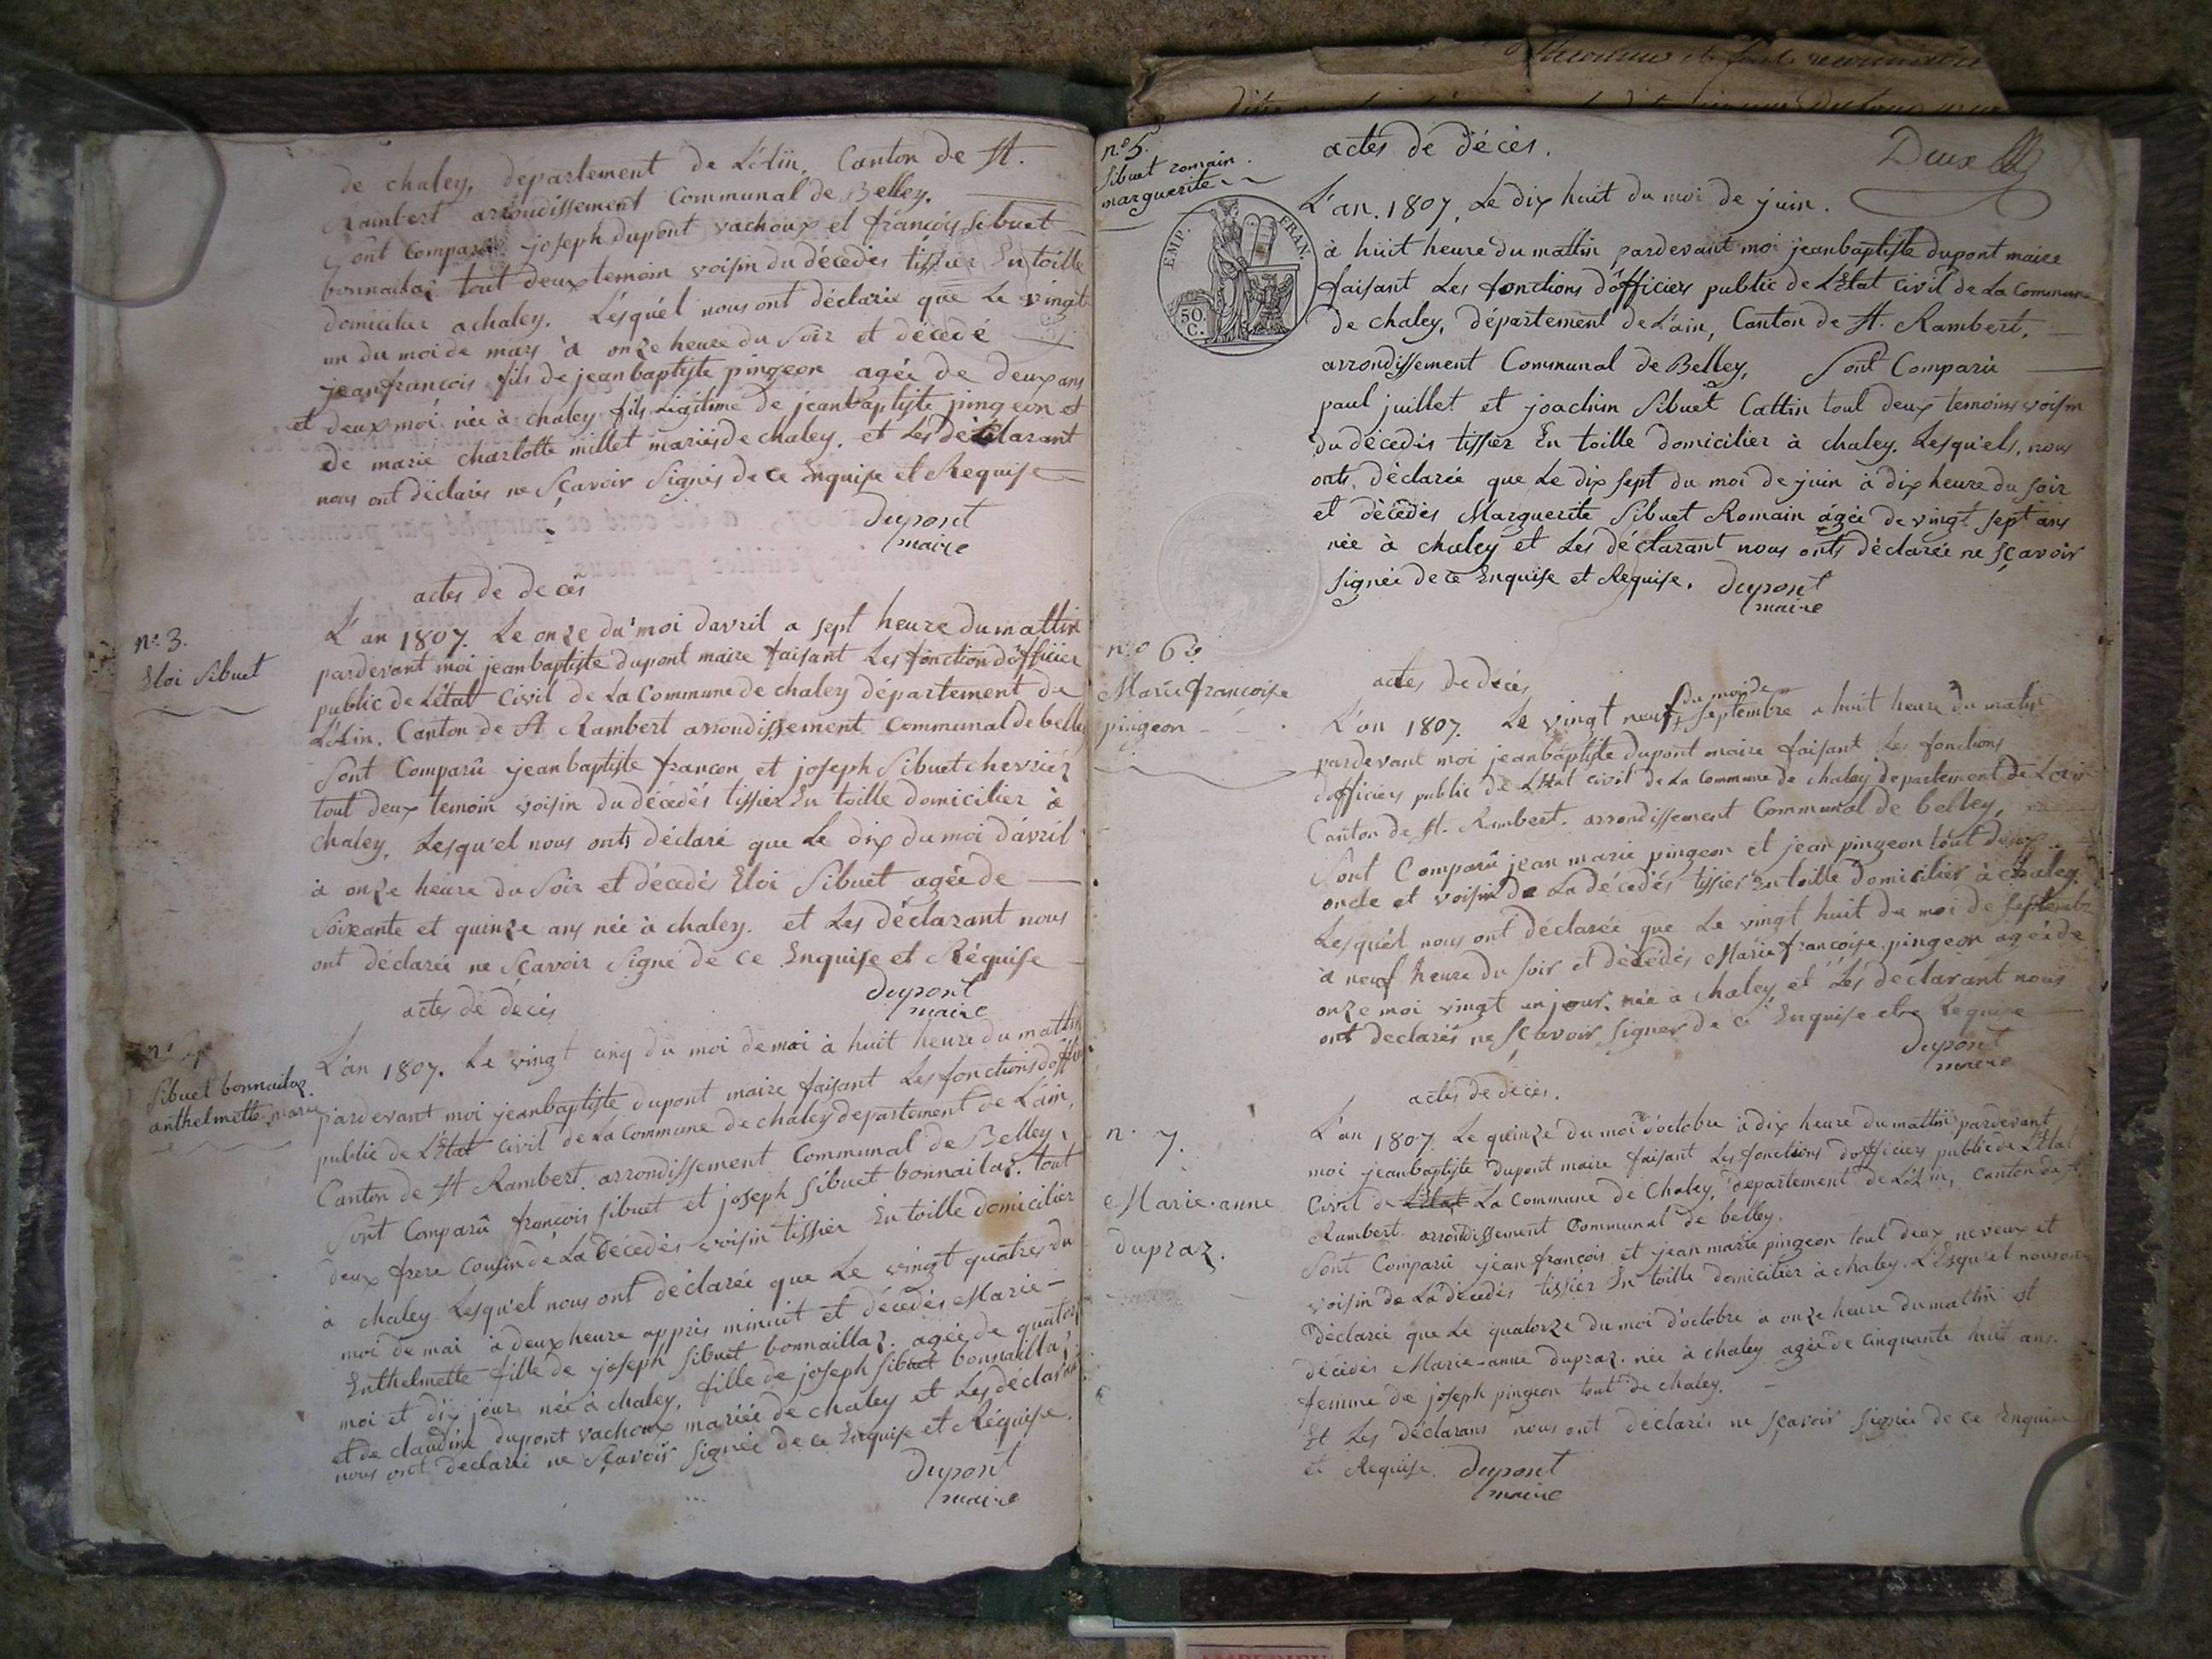 de chaley, département de L'Ain, Canton de St.
Rambert arrondissement Communal de Belley.
Sont Comparû joseph dupont vachoux et françois Sibuet
bonnailaz tout deux temoin voisin du décedés tissier En toille
domicilier a chaley. Lésquél nous ont déclarée que Le vingt
un du moi de mars à onze heure du Soir et décedé
jeanfrancois fils de jeanbaptiste pingeon agée de deux ans
et deux moi née à chaley fils Légitime de jeanbaptiste pingeon et
de marie charlotte millet mariés de chaley. et Les déclarant
nous ont déclarés ne Sçavoir Signés de ce Enquise et Requise
dupont
maire
actes de decès
n.o 3.
Eloi Sibuet
L'an 1807. Le onze du moi davril a sept heure du mattin
pardevant moi jeanbaptiste dupont maire faisant Les fonction d'officier
public de L'état Civil de La Commune de chaley département de
L'Ain. Canton de St Rambert arrondissement Communal de belley
Sont Comparû jeanbaptiste francon et joseph Sibuet chevrier
tout deux temoin voisin du décedés tissier En toille domicilier à
chaley. Lesqu'el nous onts déclaré que Le dix du moi d'avril
à onze heure du Soir et décedés Eloi Sibuet agée de
Soixante et quinze ans née à chaley. et Les déclarant nous
ont déclarée ne Sçavoir Signé de ce Enquise et Réquise
dupont
maire
actes de décès
n.o 4
Sibuet bonnailaz
anthelmette marie
L'an 1807. Le vingt cinq du moi de mai à huit heure du mattin
pardevant moi jeanbaptiste dupont maire faisant Les fonctions d'offi
public de L'Etat civil de La Commune de chaley departement de L'ain,
Canton de St Rambert. arrondissement Communal de Belley,
Sont Comparû françois Sibuet et joseph Sibuet bonnailaz. tout
deux frere Cousin de La décedés voisin tissier En toille domicilier
à chaley Lesqu'el nous ont déclarée que Le vingt quatres du
moi de mai à deux heure apprès minuit et décedés Marie-
Enthelmette fille de joseph Sibuet bonnaillaz. agée de quatorz
moi et dix jour née à chaley. fille de joseph Sibuet bonnailla
et de claudine dupont vachoux mariée de chaley et Les déclarant
nous ont declarée ne Sçavoir Signée de ce Enquise et Réquise.
dupont
maire
n.o 5.
Sibuet romain.
marguerite
actes de décès.
Deux
EMP. FRAN.
50 C.
L'an. 1807, Le dix huit du moi de juin.
à huit heure du mattin pardevant moi jeanbaptiste dupont maire
faisant Les fonctions d'officiers public de L'Etat Civil de La Commune
de chaley, département de L'ain, Canton de St. Rambert,
arrondissement Communal de Belley, Sont Comparû
paul juillet et joachim Sibuet Cattin tout deux temoins voisin
du décedés tissier En toille domicilier à chaley. Lesqu'els, nous
onts, déclarée que Le dix sept du moi de juin à dix heure du soir
et décedés Marguerite Sibuet Romain agée de vingt sept ans
née à chaley et Les déclarant nous onts déclarée ne sçavoir
Signée de ce Enquise et Requise. dupont
maire
n.o 6
Marie françoise
pingeon
actes de decès
du moi de
L'an 1807. Le vingt neuf, Septembre a huit heure du matin
pardevant moi jeanbaptiste dupont maire faisant Les fonctions
d'officiers public de L'Etat civil de La Commune de chaley departement de L'ain
Canton de St. Rambert. arrondissement Communal de belley,
Sont Comparû jean marie pingeon et jean pingeon tout deux
oncle et voisin de La décedés tissier En toille domicilier à chaley.
Lesquél nous ont déclarée que Le vingt huit du moi de septembre
à neuf heure du soir et décedés Marie francoise pingeon agée de
onze moi vingt un jour. née à chaley et Les declarant nous
ont declarés ne Sçavoir Signer de ce Enquise et Requise
dupont
maire
actes de decès.
n.o 7.
Marie-anne
dupraz.
L'an 1807. Le quinze du moi d'octobre à dix heure du mattin pardevant
moi jeanbaptiste dupont maire faisant Les fonctions d'officiers public de L'Etat
Civil de L'Etat La Commune de Chaley, departement de L'Ain, Canton de St
Rambert. arrondissement Communal de belley.
Sont Comparû jean françois et jean marie pingeon tout deux neveux et
voisin de La décedés tissier En toille domicilier à chaley. L'Esqu'el nous ont
Déclarée que Le quatorze du moi d'octobre à onze heure du mattin et
décedés Marie-anne dupraz. née à chaley agée de cinquante huit ans.
femme de joseph pingeon tout de chaley.
Et Les déclarans nous ont déclarés ne sçavoir signée de ce Enquise
et Requise. dupont
maire